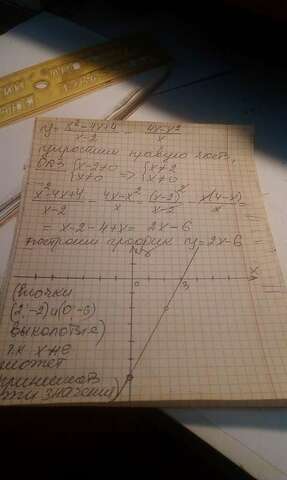 y = x²-4x+4/x-2 - 4x-x²/x
упростим правую часть,
ОДЗ {x-2≠0 {x≠0 => {x≠2 {x≠0
x²-4x+4/x-2 - 4x-x²/x = (x-2)²/x-2 - x(4-x)/x =
= x-2-4+x = 2x-6
Построим график y=2x-6
y
x
0
3
(точки
(2;-2) и (0;-6)
выколоты)
т.к. x не
может
принимать
эти значения)